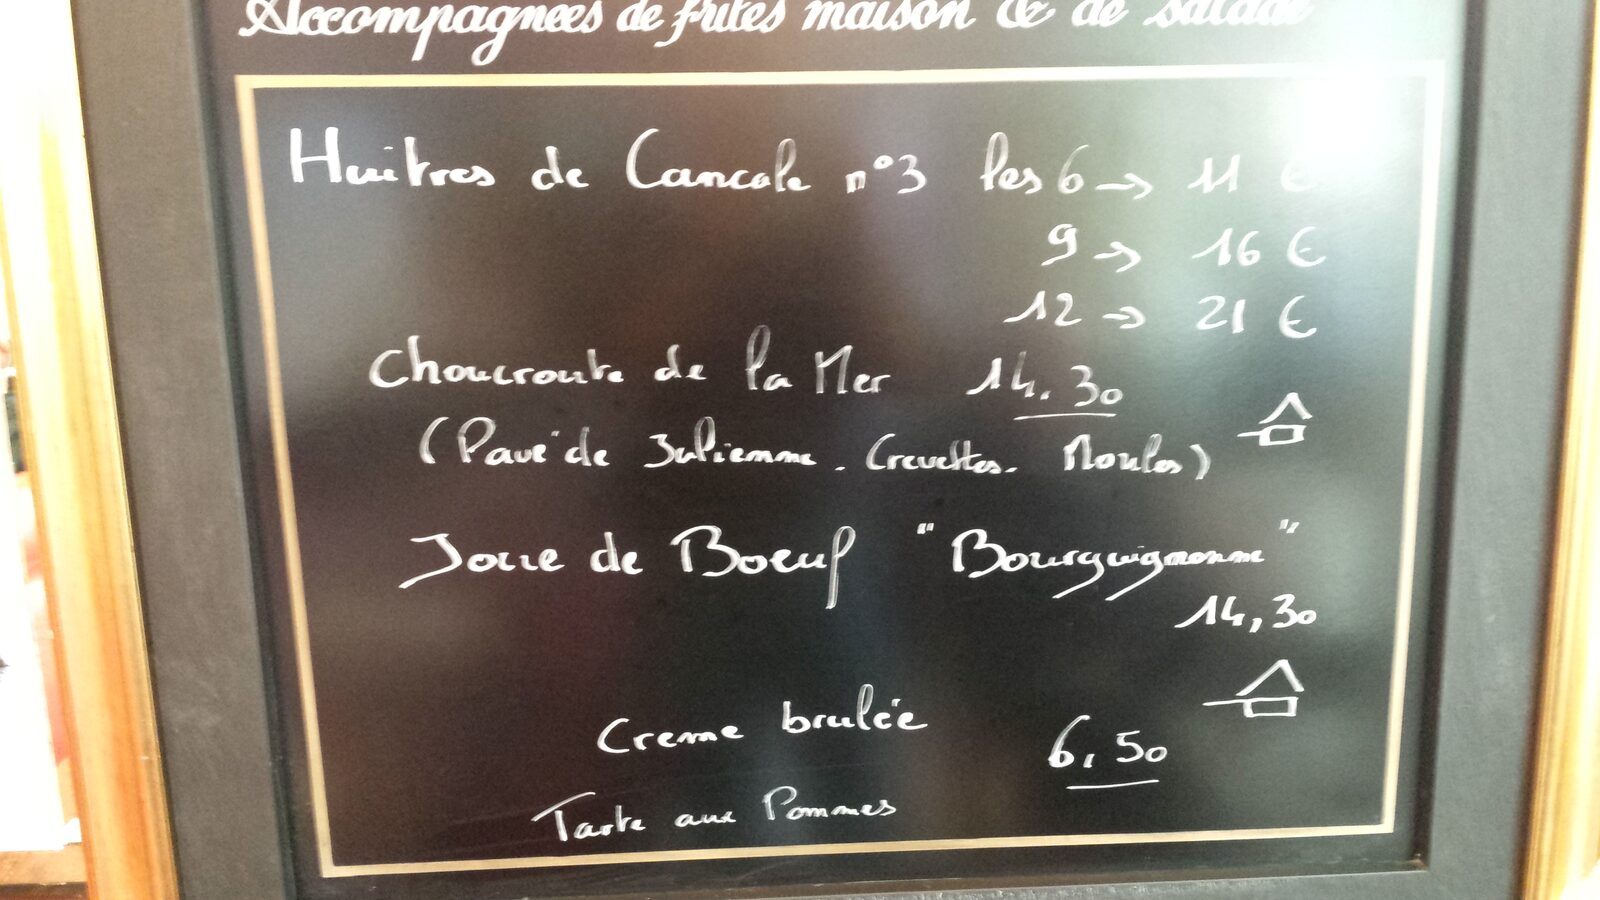 Accompagnées de frites maison & de salade
Huitres de Cancale n°3 les 6 → 11 €
9 → 16 €
12 → 21 €
Choucroute de la Mer 14.30
(Pavé de Julienne. Crevettes. Moules)
Joue de Boeuf "Bourguignonne"
14,30
Creme brulée 6,50
Tarte aux Pommes